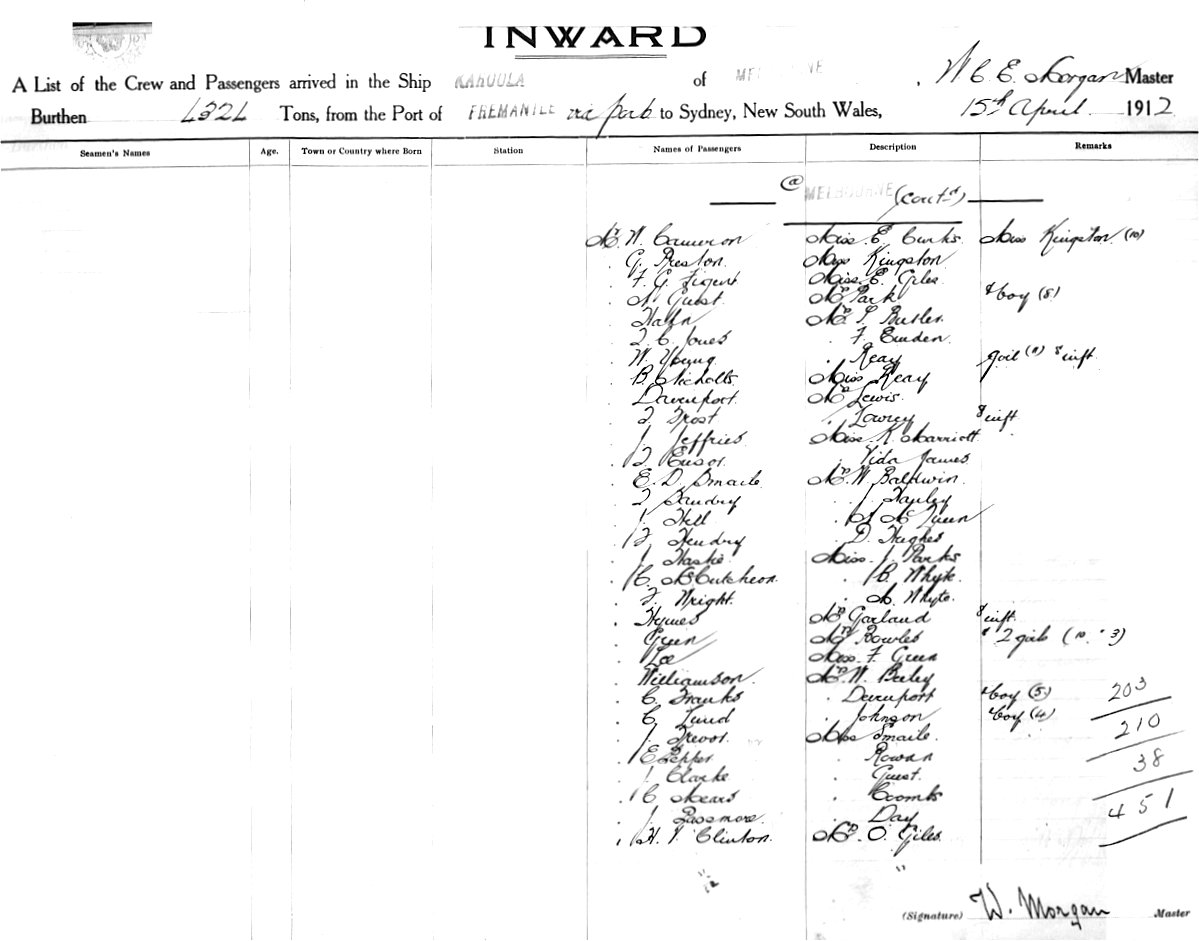 INWARD
A List of the Crew and Passengers arrived in the Ship of W C E. Morgan Master
Burthen Tons, from the Port of FREMANTLE via ports to Sydney, New South Wales, 15th April 1912
Seamen's Names Age. Town or Country where Born Station Names of Passengers Description Remarks
@ MELBOURNE (Contd)
Mr. W. Cameron Miss. E. Miss Kingston (10)
. G. Preston. Miss Kingston
. F. G. Miss. E. Giles
. Guest Park & boy (8)
. Hahn Butler
. Jones . F. Emden.
. W. Young . Reay girl (11) & inft.
. B. Nicholls Miss Reay
. Davenport. Lewis.
. Frost . Lowrey & inft
. J. Jeffries Miss. K. Marriott
. . Vida James
. E. D. Smaile. W. Baldwin.
. .
. J. Hill .
. Hendry . D. Hughes
. J. Miss. J. Parks
. C. McCutcheon. . C. Whyte.
. Wright. . Whyte.
. Hymes Garland & inft.
. Green Rowles & 2 girls (10. " 3)
. Lee Miss. F. Green
. Williamson. W. Beeley
. C. Franks . Davenport & boy (5) 203
. C. Lund . Johnson & boy (4) 210
. J. Trevor. Miss Smaile.
. E. Pepper . Rowan 38
. J. Clarke . Guest.
. C. Mears . Coombs 451
. J. Passmore. . Day
. H. Clinton. O. Giles.
(Signature) W. Morgan Master